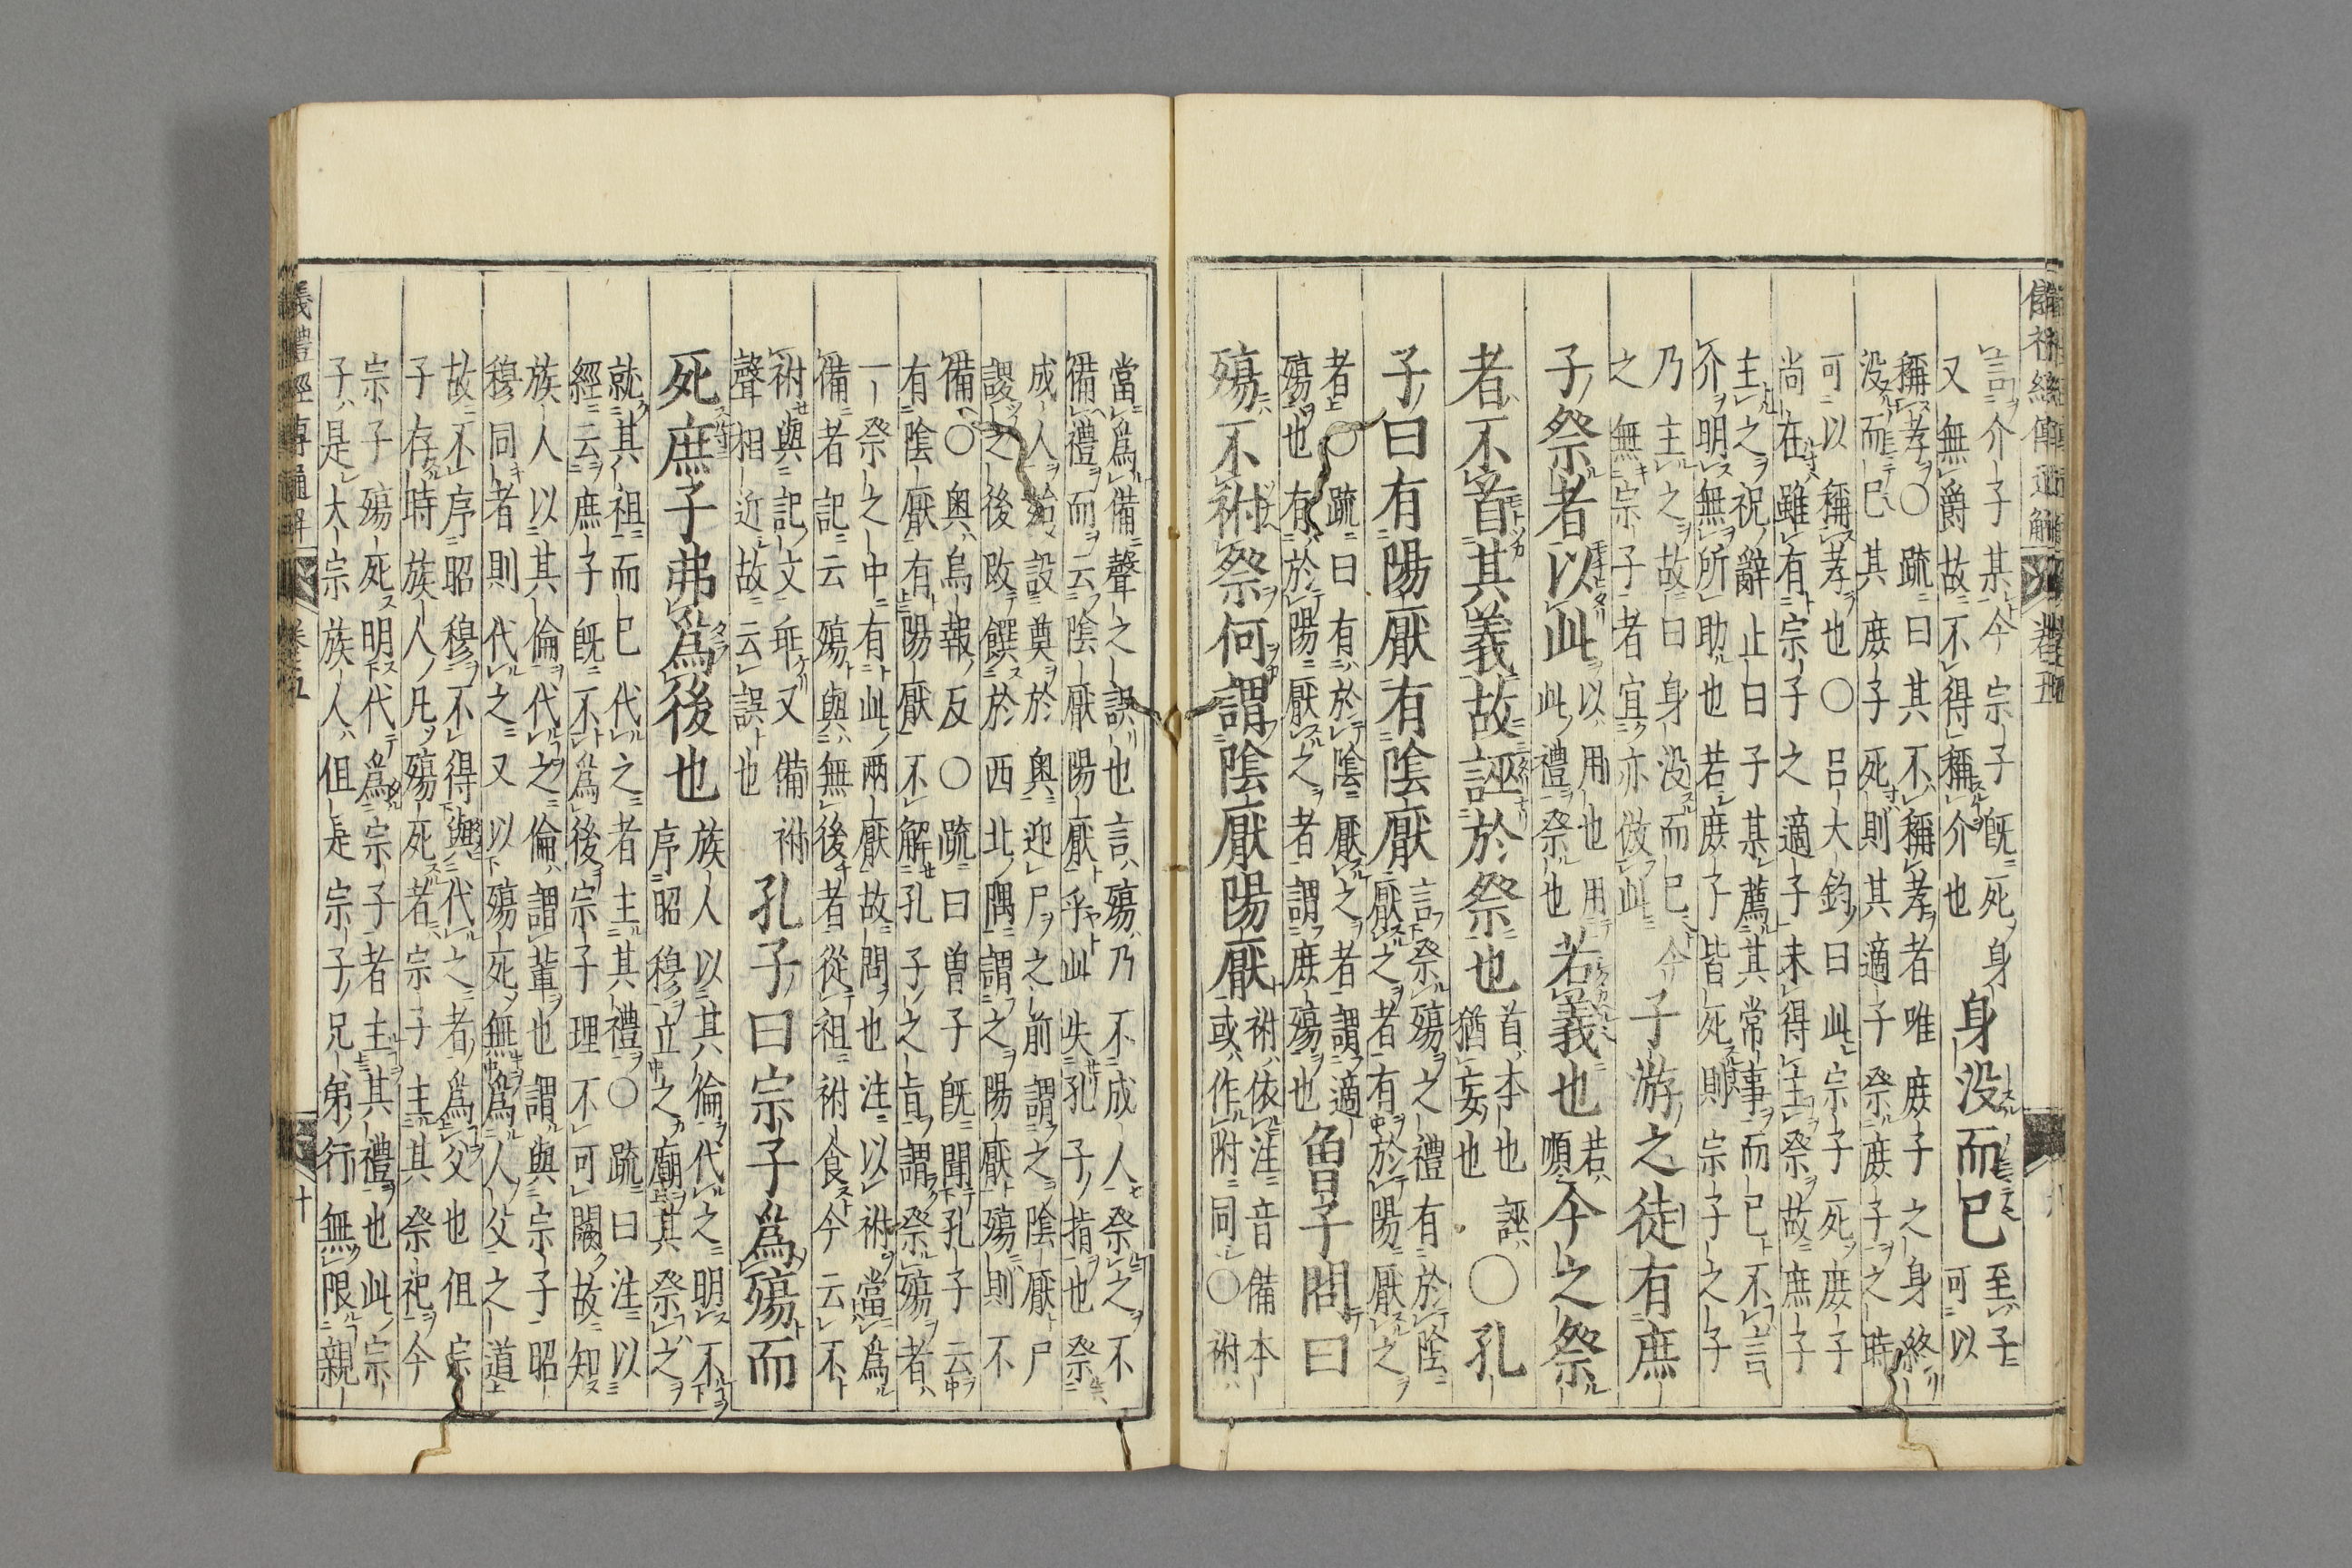 儀禮經傳通解 卷五 九
言介子某今宗子旣死身
又無爵故不得稱介也
身没而已
至子
可以
稱孝〇疏曰其不稱孝者唯庻子之身終
没而已其庻子死則其適子祭庻子之時
可以稱孝也〇呂大鈞曰此宗子死庻子
尚在雖有宗子之適子未得主祭故庶子
主之祝辭止曰子某薦其常事而已不言
介明無所助也若庻子皆死則宗子之子
乃主之故曰身没而已今
之無宗子者宜亦倣此
子游之徒有庶
子祭者以此
以用也用
此禮祭也
若義也
若
順
今之祭
者不首其義故誣於祭也
首本也誣
猶妄也
〇孔
子曰有陽厭有陰厭
言祭殤之禮有於陰
厭之者有於陽厭之
者〇疏曰有於陰厭之者謂適
殤也有於陽厭之者謂庻殤也
曾子問曰
殤不祔祭何謂陰厭陽厭
祔依注音備本
或作附同〇祔
當爲備聲之誤也言殤乃不成人祭之不
備禮而云陰厭陽厭乎此失孔子指也祭
成人始設奠於奧迎尸之前謂之陰厭尸
謖之後改饌於西北隅謂之陽厭殤則不
備〇奧烏報反〇疏曰曽子旣聞孔子云
有陰厭有陽厭不解孔子之旨謂祭殤者
一祭之中有此兩厭故問也注以祔當爲
備者記云殤與無後者從祖祔食今云不
祔與記文乖又備祔
聲相近故云誤也
孔子曰宗子爲殤而
死庶子弗爲後也
族人以其倫代之明不
序昭穆立之廟其祭之
就其祖而已代之者主其禮〇疏曰注以
經云庶子旣不爲後宗子理不可闕故知
族人以其倫代之倫謂輩也謂與宗子昭
穆同者則代之又以殤死無爲人父之道
故不序昭穆不得與代之者爲父也但宗
子存時族人凡殤死者宗子主其祭祀今
宗子殤死明代爲宗子者主其禮也此宗
子是大宗族人但是宗子兄弟行無限親
儀禮經傳通解 卷五 十